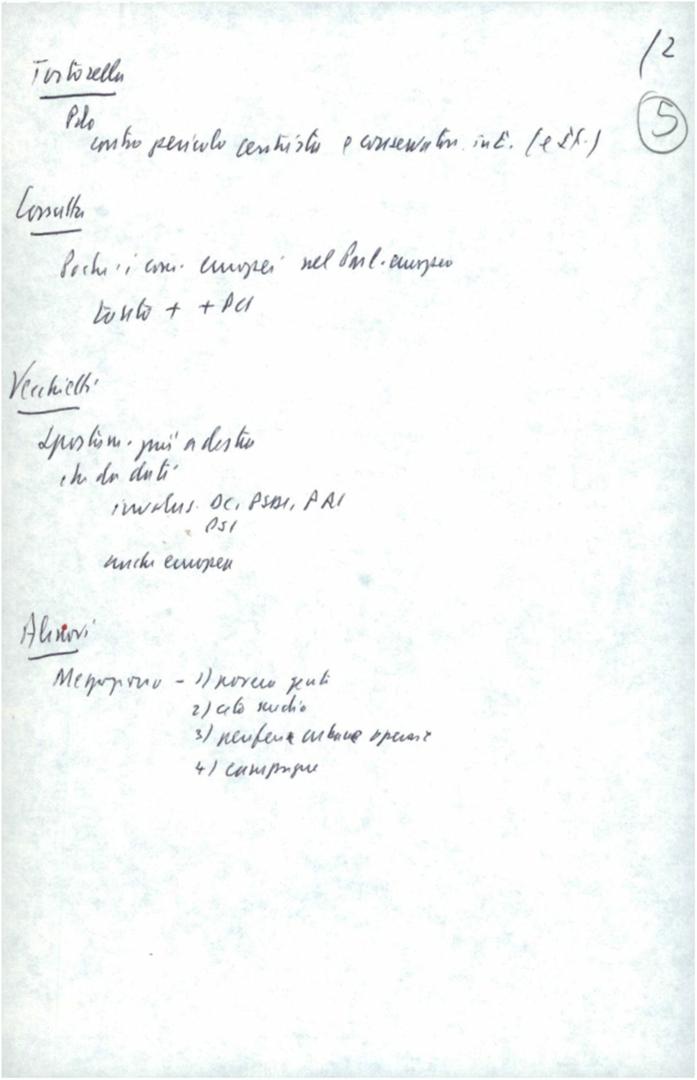 /2
5
Tortorella
Polo
contro pericolo centrista e conservator. int. (e
Cossutta
Pochi i com. europei nel Parl. europeo
tanto + + PCI
Vecchietti
Spostam. più a destra
che da dati
involus. DC, PSDI, PRI
PSI
anche europea
Alinovi
Mezzogiorno - 1) povera gente
2) ceto medio
3) periferie urbane operaie
4) campagne